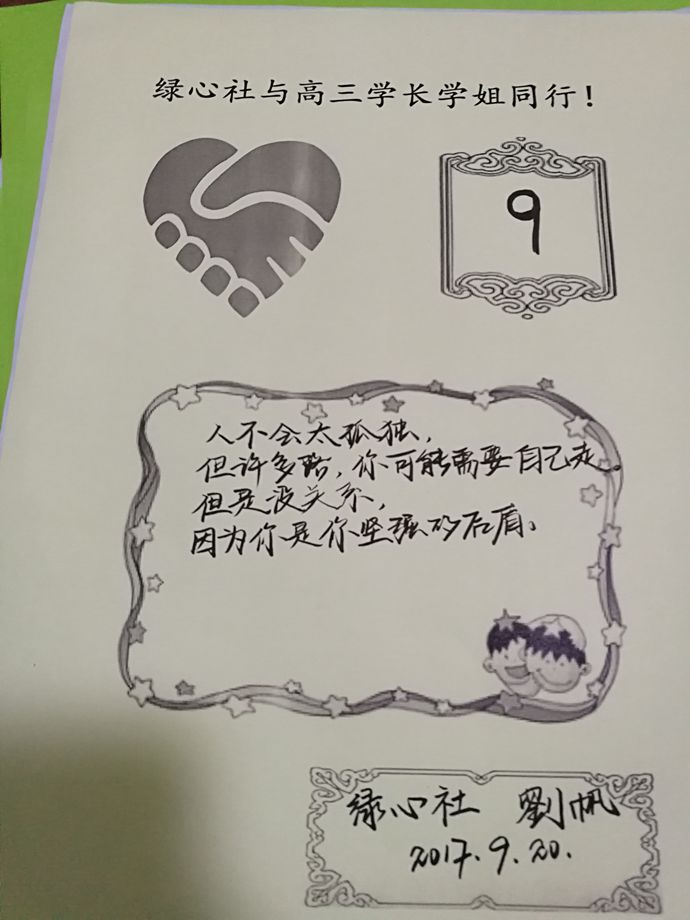 绿心社与高三学长学姐同行！
9
人不会太孤独，
但许多路，你可能需要自己走。
但是没关系，
因为你是你坚强的后盾。
绿心社 劉帆
2017.9.20.